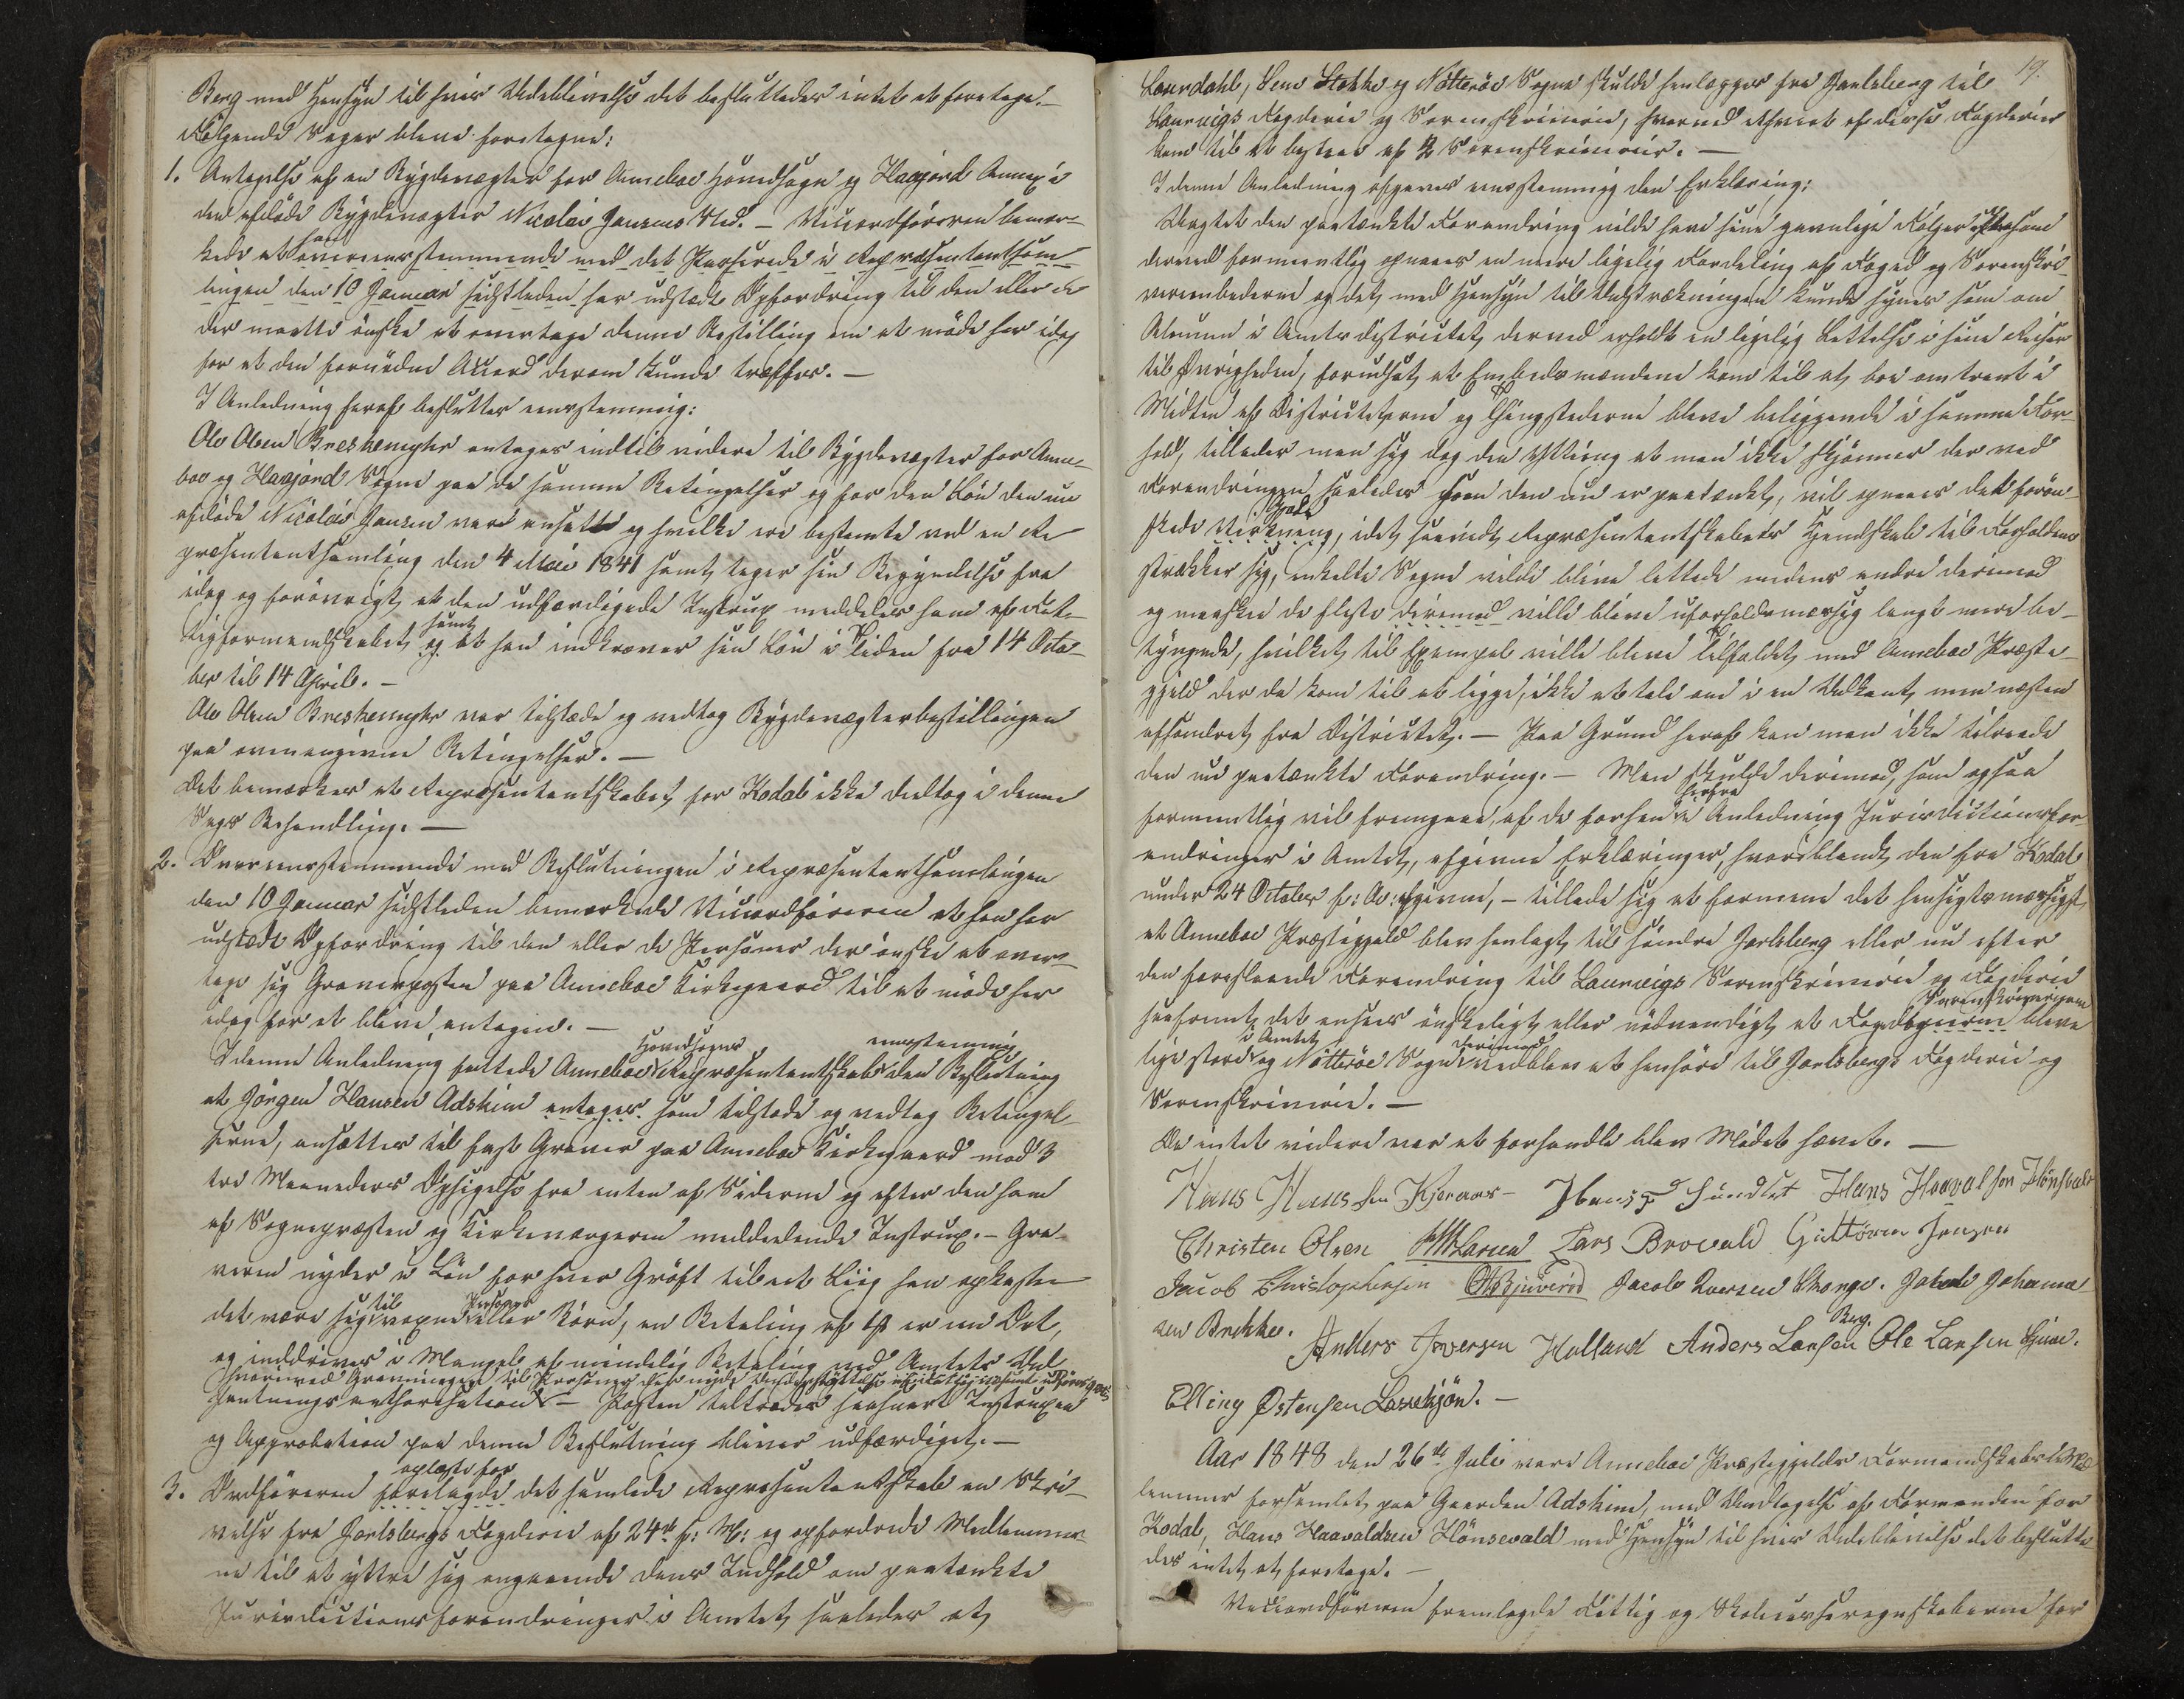 Berg med Hensyn til hvis Udeblivelse det besluttedes intet at foretage.—
Følgende Sager bleve foretagne:
1. Antagelse af en Bygdevægter for Anneboe Hovedsogn og Haasjord Annex i
den afdøde Bygdevægter Nicolai Jansens Sted. – Viceordføreren bemær-
kede at han overeensstemmende med det Passerede i Repræsentantsam-
lingen den 10 Januar sidstleden har udstædt Opfordring til den eller de
der maatte ønske at overtage denne Bestilling om at møde her idag
for at den fornødne Accord derom kunde træffes.—
I Anledning heraf besluttes eensstemmig:
Ole Olsen Breskemyhr antages indtil videre til Bygdevægter for Anne-
boe og Haasjord Sogne paa de samme Betingelser og for den Løn den nu
afdøde Nicolai Jansen var ansatte og hvilke ere bestemte ved en Re
præsentantsamling den 4 Mai 1841 samt tager sin Begyndelse fra
idag og forøvrigt at den udfærdigede Instrux meddeles ham af Fat-
tigformandskabet og samt at han indkræver sin Løn i Tiden fra 14 Octo-
ber til 14 April.—
Ole Olsen Breskemyhr var tilstæde og vedtog Bygdevægterbestillingen
paa ovenangivne Betingelser.—
Det bemærkes at Repræsentantskabet for Kodal ikke deeltog i denne
Sags Behandling.—
2. Overeensstemmende med Beslutningen i Repræsentantsamlingen
den 10 Januar sidstleden bemærkede Viceordføreren at han har
udstædt Opfordring til den eller de Personer der ønske at over-
tage sig Graverposten paa Anneboe Kirkegaard til at møde her
idag for at blive antagen.—
I denne Anledning fattede Anneboe Hovedsogns Repræsentantskab eensstemmig den Beslutning
at Jørgen Hansen Adskim antages som tilstæde og vedtog Betingel-
serne, ansættes til fast Graver paa Anneboe Kirkegaard mod 3
tre Maaneders Opsigelse fra enten af Siderne og efter den ham
af Sognepræsten og Kirkeværgeren meddeelende Instrux.– Gra-
veren nyder i Løn for hver Grøft til et Liig han opkaster
det være sig til voxne Personer eller Børn, en Betaling af er en Ort,
og inddrives i Mangel af mindelig Betaling ved Amtets Ud
hvorimod Gravningen til Personer der nyde Understyttelse af
pantningsauthorisation – Posten tiltrædes saasnart Instruxen
og Approbation paa denne Beslutning bliver udfærdiget.—
3. Ordføreren forelagde oplæste for det samlede Repræsentantskab en Skri-
velse fra Jarlsbergs Fogderie af 24de f: M: og opfordrede Medlemmer-
ne til at yttre sig angaaende dens Indhold om paatænkte
Jurisdictionsforandringer i Amtet saaledes at
19.
Laurdahl, Sems Stokke og Nøtterøe Sogne skulde henlægges fra Jarlsberg til
Laurvigs Fogderie og Sorenskriverie, hvorved ethvert af disse Fogderier
kom til at bestaae af 2 Sorenskriverier.—
I denne Anledning afgaves eensstemmig den Erklæring:
Uagtet den paatænkte Forandring vilde have sine gavnlige Følger eftersom
derved formeentlig opnaaes en mere ligelig Fordeling af Foged og Sorenskri-
verembederne og det med Hensyn til Udstrækningen kunde synes som om
Almuen i Amtsdistrictet derved erholdt en ligelig Lettelse i sine Reiser
til Øvrigheden, forudsat at Embedsmændene kom til at boe omtrent i
Midten af Districteterne og Thingstederne bleve beliggende i samme For-
hold, tillader man sig dog den Yttring at man ikke skjønner der ved
Forandringen saaledes som den nu er paatænkt, vil opnaaes det forøn-
skede Virkning, idet saavidt Repræsentantskabets Kjendskab til Forholdene
strækker sig, enkelte Sogne vilde blive lettede medens andre derimod
og maaskee de fleste derimod ville blive uforholdsmæssig langt mere be-
tyngede, hvilket til Exempel ville blive Tilfældet med Anneboe Præste-
gjeld der da kom til at ligge, ikke at tale om i en Udkant, men næsten
afsondret fra Districtet.— Paa Grund heraf kan man ikke tilraade
den nu paatænkte Forandring.— Man skulde derimod, som ogsaa
formeentlig vil fremgaae af de forhen herfra i Anledning Jurisdictionsfor-
andringer i Amtet, afgivne Erklæringer, hvoriblandt den fra Kodal
under 24 October f: A: afgivne, – tillade sig at formene det hensigtsmæssigst
at Anneboe Præstegjeld blev henlagt til søndre Jarlsberg eller nu efter
den foreslaaede Forandring til Laurvigs Sorenskriverie og Fogderie
saafremt det ansees ønskeligt eller nødvendigt at Fogderierne Sorenskriverierne bleve
lige store i Amtet og Nøtterøe Sogn derimod vedblev at henhøre til Jarlsbergs Fogderie og
Sorenskriverie.—
Da intet videre var at forhandle blev Mødet hævet.—
Hans Hansen Kjeraas – Sundset Hans Haavalsen Hønsvald
Christen Olsen Larsen Lars Brovald Guttorm Jensen
Jacob Christophersen OABjuerød Jacob Iversen Skorge. Jakob Johanne
sen Brekke. Anders Iversen Holland Anders Larsen Berg. Ole Larsen
Elling Østensen Lasseskjøn.—
Aar 1848 den 26de Juli vare Anneboe Præstegjelds Formandskabs Med
lemmer forsamlet paa Gaarden Adskim, med Undtagelse af Formanden for
Kodal, Hans Haavaldsen Hønsevald med Hensyn til hvis Udeblivelse det beslutte
des intet at foretage.—
Viceordføreren fremlagde Fattig og Skolecasseregnskaberne for